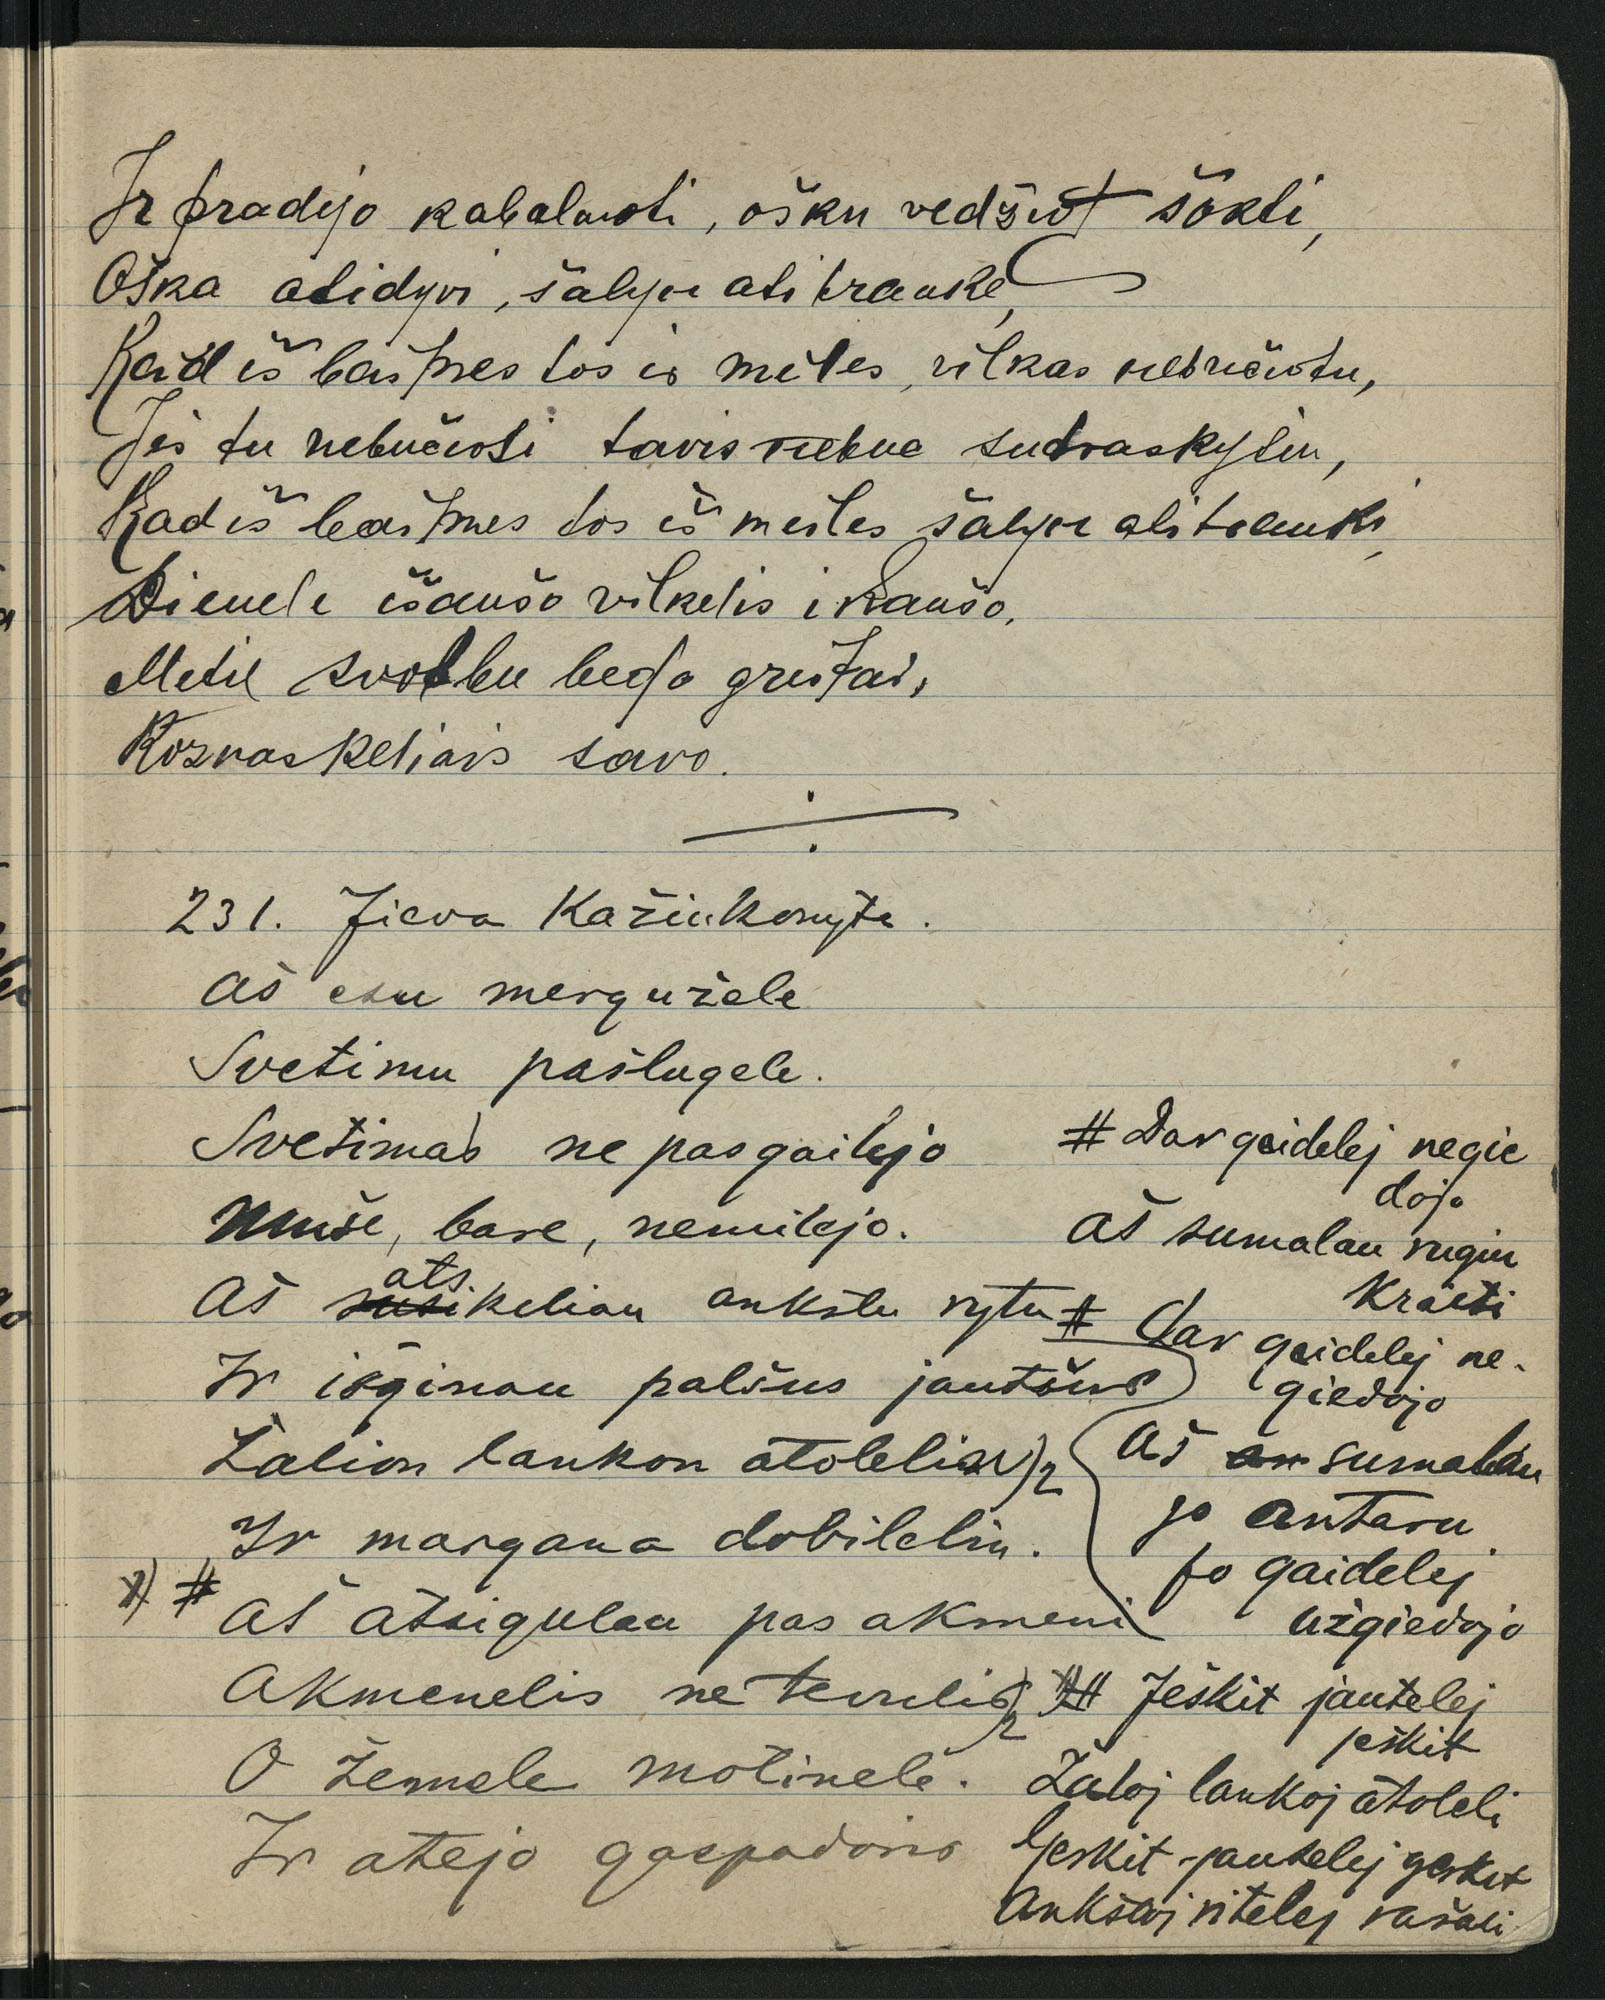 Ir pradėjo kabalduoti, ošku vedžiot šokti,
Oška atidyvi, šalyn atitrauke,
Kad iš baimes tos is miles, vilkas nebučiotu,
Jei tu nebučiosi tavis nebuc sudraskysiu,
Kad iš baimes tos iš meiles šalyn atitrauki,
Dienele išaušo vilkelis ikaušo,
Metil svotbu bego greitai,
Koznaskeliais savo.
231. Jieva Kažiukonyte.
Aš esu mergužele
Svetimu pašlugele.
Svetimas ne pasgailejo
Muše, bare, nemilejo.
Aš atsikeliau ankstu rytu #
Ir išginau palšus jautšius
Žalion lankon atoleliu)2
Ir margana dobileliu.
x) # Aš atsigulau pas akmeni
Akmenelis ne tevelis)2
O žemele motinele.
Ir atejo gaspadoris
# Dar gaidelej negie
dojo
Aš sumalau rugiu
kraiti
Dar gaidelej ne-
giedojo
Aš sumalau
jo antaru
jo gaidelej
užgiedojo
## Ješkit jautelej
ješkit
Žaloj lankoj atoleli
Gerkit jautelej gerkit
Ankštoj ritelej rašali